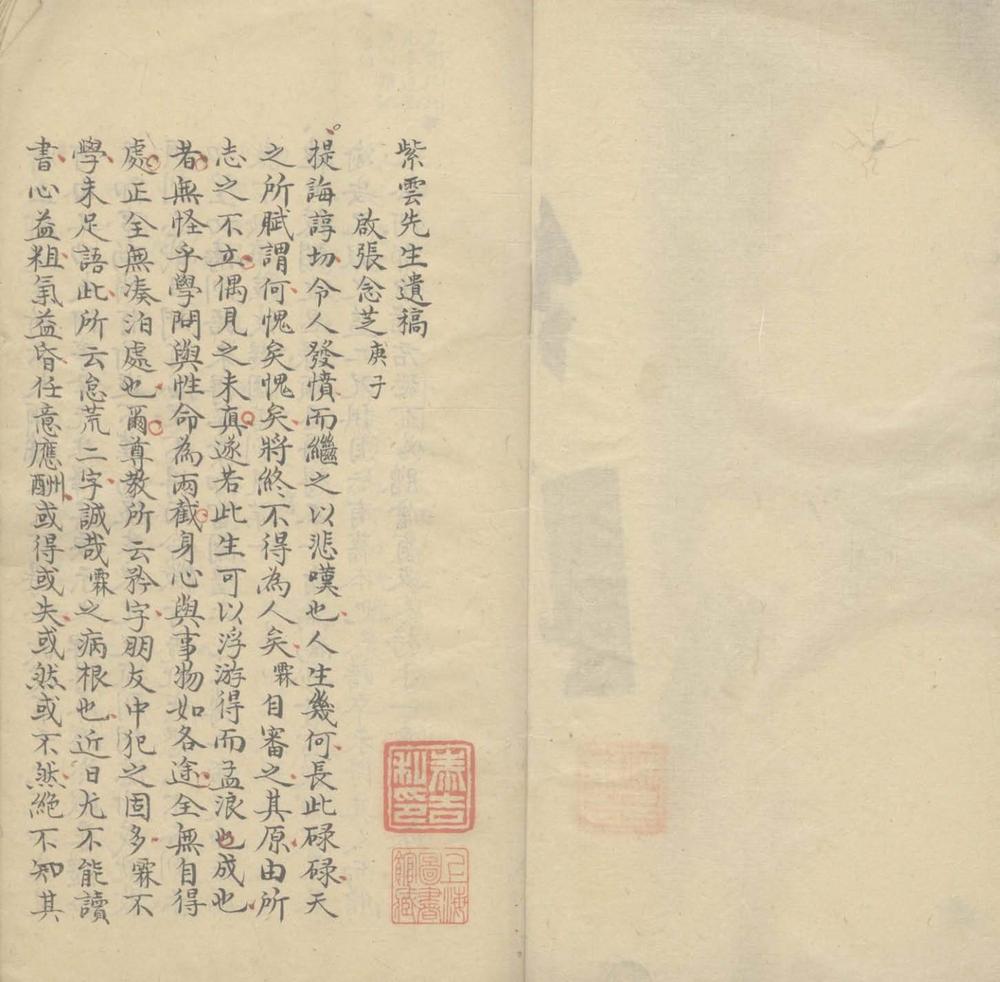 紫雲先生遺稿
啟張念芝庚子
提誨諄切令人發憤而繼之以悲嘆也人生幾何長此碌碌天
之所賦謂何愧矣愧矣將終不得為人矣霖自審之其原由所
志之不立偶見之未真遂若此生可以浮游得而孟浪也成也
者無怪乎學問與性命為兩截身心與事物如各途全無自得
處正全無湊泊處也爾尊教所云矜字朋友中犯之固多霖不
學未足語此所云怠荒二字誠哉霖之病根也近日尤不能讀
書心益粗氣益昏任意應酬或得或失或然或不然絕不知其
上海
圖書
館藏